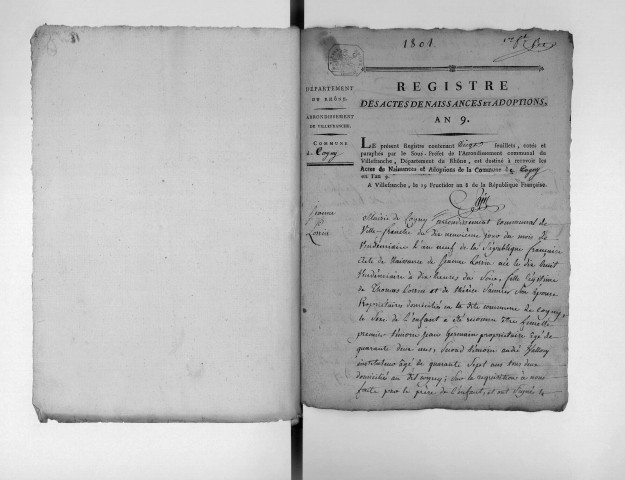 1801
REGISTRE
DES ACTES DE NAISSANCES ET ADOPTIONS,
AN 9.
DÉPARTEMENT
DU RHÔNE.
ARRONDISSEMENT
DE VILLEFRANCHE.
COMMUNE
de Cogny
LE présent Registre contenant vingt feuillets, cotés et
paraphés par le Sous-Préfet de l'Arrondissement communal de
Villefranche, Département du Rhône, est destiné à recevoir les
Actes de Naissances et Adoptions de la Commune de Cogny
en l'an 9.
A Villefranche, le 19 Fructidor an 8 de la République Française.
Jeanne
Lorrin
Mairie de Cogny arrondissement communal de
Ville-franche du dix neuvième jour du mois de
Vendémiaire l'an neuf de la République française
Acte de Naissance de Jeanne Lorrin née le dix huit
Vendémiaire à dix heures du Soir, fille légitime
de Thomas Lorrin et de Saunier Son épouse
Propriétaires domiciliés en la dite commune de Cogny,
le Sexe de l'enfant a été reconnu être femelle
premier témoin jean Germain propriétaire âgé de
quarante deux ans, Second témoin andré
instituteur âgé de quarante Sept ans tous deux
domiciliés au dit Cogny; Sur la requisition à nous
faite par le père de l'enfant, et ont Signés